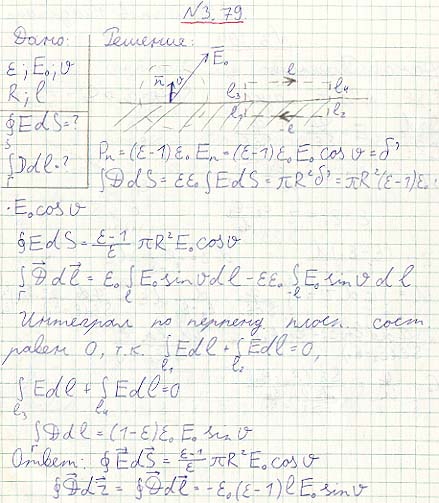 №3.79.
Дано: Решение:
ε; E₀; υ
R; l
∮EdS=?
S
∫Ddl=?
Γ
n⃗ υ E⃗₀ l₃ l l₄
l₁ -l l₂
Pₙ=(ε-1)ε₀Eₙ=(ε-1)ε₀E₀cosυ=δ'
∫DdS=εε₀∫EdS=πR²δ'=πR²(ε-1)ε₀·
·E₀cosυ
∮EdS=(ε-1)/ε πR²E₀cosυ
∫D⃗dl⃗=ε₀∫E₀sinυdl-εε₀∫E₀sinυdl
Γ l -l
Интеграл по перпенд плоск. сост.
равен 0, т.к. ∫Edl+∫Edl=0,
l₁ l₂
∫Edl+∫Edl=0
l₃ l₄
∫Ddl=(1-ε)ε₀E₀sinυ
Γ
Ответ: ∮E⃗dS⃗=(ε-1)/ε πR²E₀cosυ
∮D⃗dr⃗=∮D⃗dl⃗=-ε₀(ε-1)lE₀sinυ